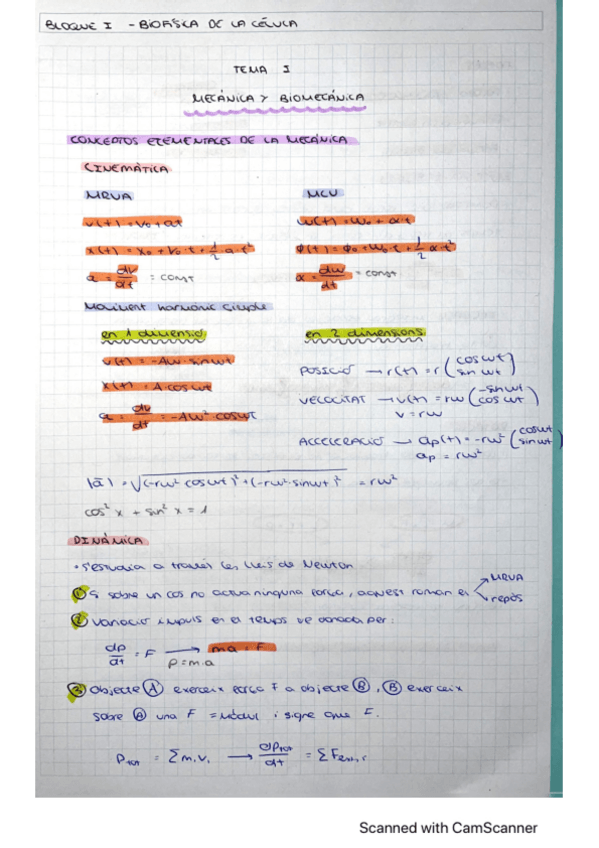 BLOQUE I - BIOFÍSICA DE LA CÉLULA
TEMA I
MECÁNICA Y BIOMECÁNICA
CONCEPTOS ELEMENTALES DE LA MECÁNICA
CINEMÁTICA
MRUA
v(t) = v₀ + at
x(t) = x₀ + v₀·t + 1/2 a·t²
a = dv/dt = const
MCU
w(t) = w₀ + α·t
φ(t) = φ₀ = w₀·t + 1/2 α·t²
α = dw/dt = const
Moviment harmònic simple
en 1 dimensió
v(t) = -Aw·sinwt
x(t) = A·coswt
a = dv/dt = -Aw²·coswt
en 2 dimensions
POSICIÓ → r(t) = r (coswt sinwt)
VELOCITAT → v(t) = rw (-sinwt coswt)
v = rw
ACCELERACIÓ → ap(t) = -rw² (coswt sinwt)
ap = rw²
|a| = √(-rw² coswt)² + (-rw² sinwt)² = rw²
cos² x + sin² x = 1
DINÁMICA
• S'estudia a través les lleis de Newton
① Si sobre un cos no actua ninguna força, aquest roman en → MRUA
→ repòs
② Variació impuls en el temps ve donada per:
dp/dt = F → ma = F
p = m·a
③ Objecte Ⓐ exerceix força F a objecte Ⓑ, Ⓑ exerceix
sobre Ⓐ una F = mòdul i signe que F.
Ptot = Σ mᵢvᵢ → dptot/dt = Σ Fext,i
Scanned with CamScanner